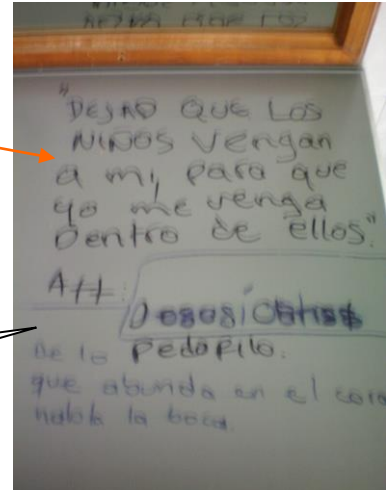 "DEJAD QUE LOS
NIÑOS vengan
a mi, para que
yo me venga
Dentro de ellos".
Att:
De lo Pedofilo.
que abunda en el
habla la boca.